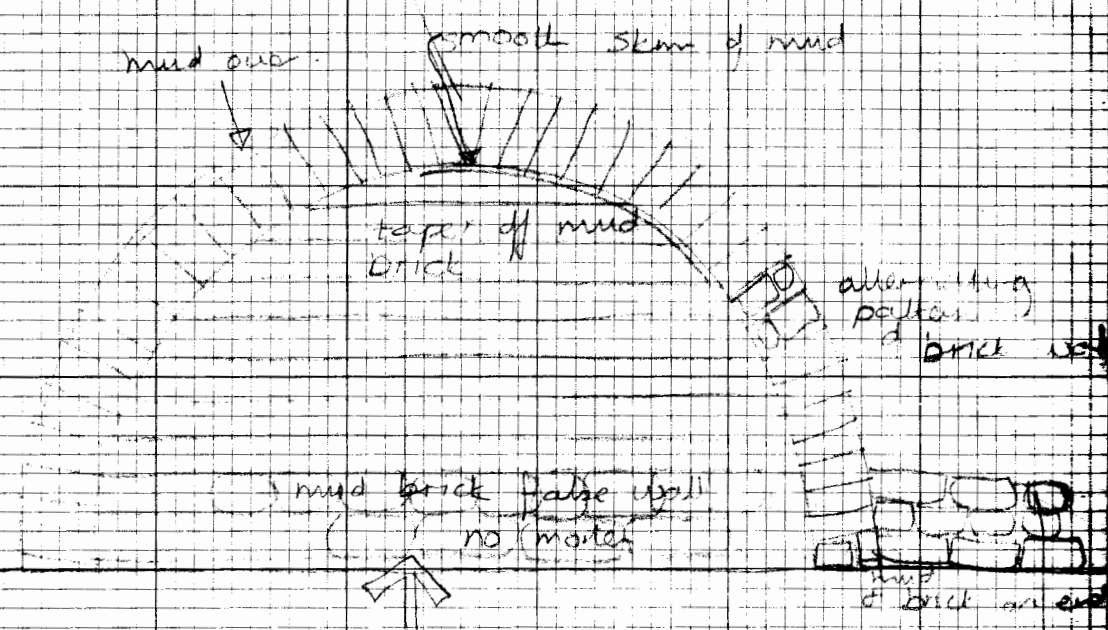 smooth skin of mud
mud over
taper of mud
brick
alternating
pattern
of
brick
mud brick false wall
no mortar
mud
of brick on end